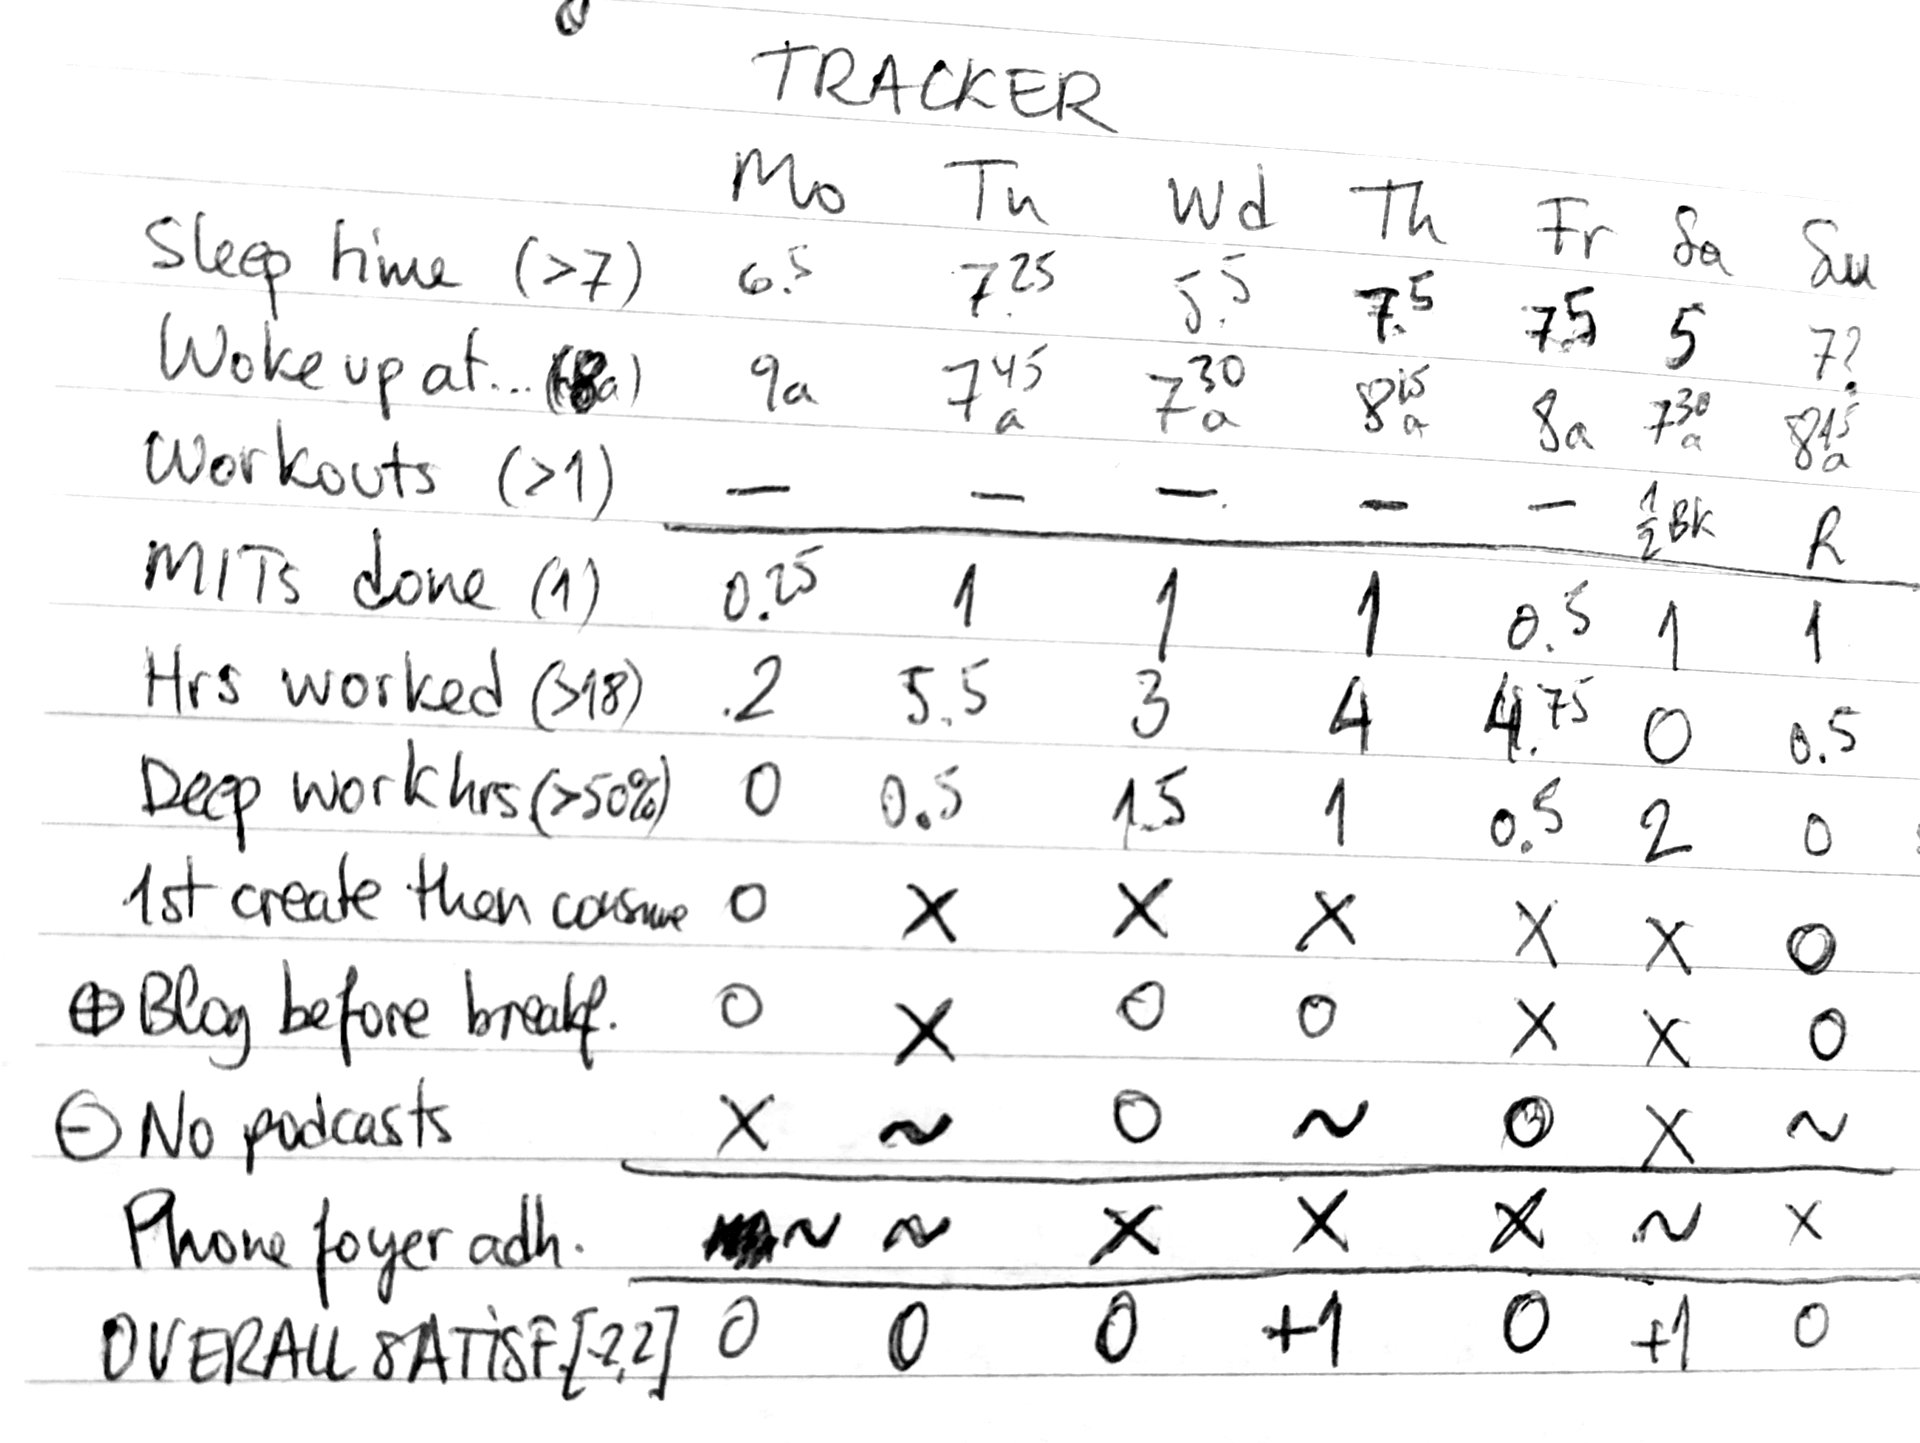 TRACKER
Mo Tu Wd Th Fr Sa Su
Sleep time (>7) 6.5 7.25 5.5 7.5 7.5 5 7?
Woke up at... (8a) 9a 7 45 a 7 30 a 8 15 a 8a 7 30 a 8 15 a
Workouts (>1) — — — — — 1/2 BK R
MITs done (1) 0.25 1 1 1 0.5 1 1
Hrs worked (>18) 2 5.5 3 4 4.75 0 0.5
Deep work hrs (>50%) 0 0.5 1.5 1 0.5 2 0
1st create then consume O X X X X X O
⊕ Blog before breakf. O X O O X X O
⊖ No podcasts X ~ O ~ O X ~
Phone foyer adh. ~ ~ X X X ~ X
OVERALL SATISF. [-2,2] 0 0 0 +1 0 +1 0